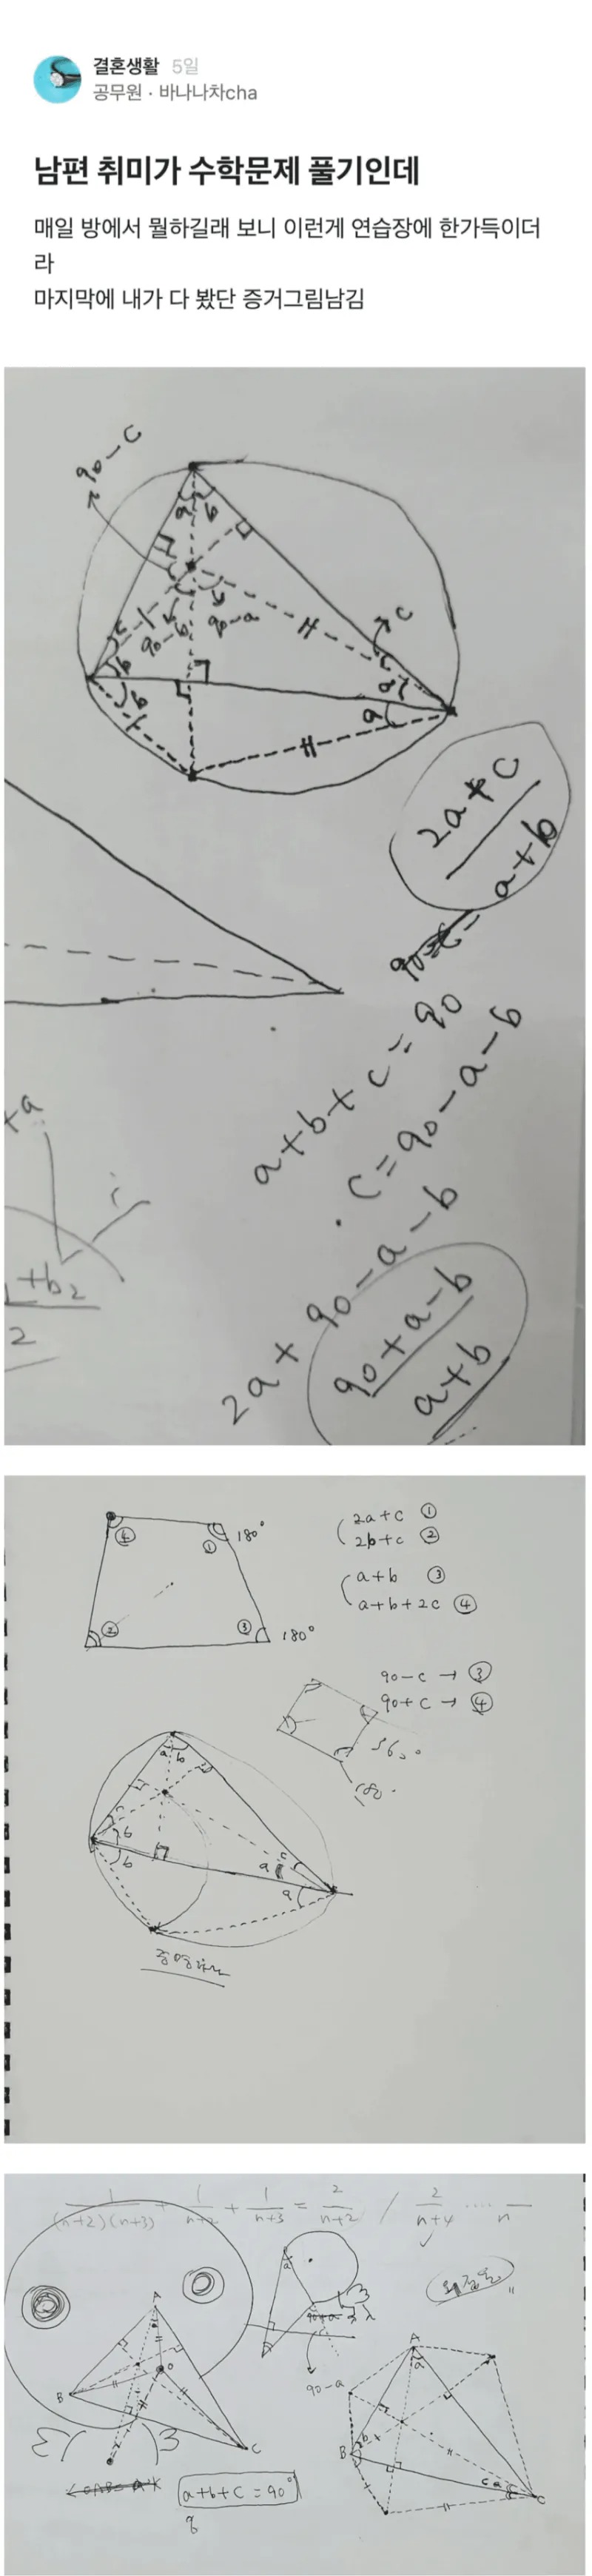 결혼생활 5일
공무원 · 바나나차cha
남편 취미가 수학문제 풀기인데
매일 방에서 뭘하길래 보니 이런게 연습장에 한가득이더
라
마지막에 내가 다 봤단 증거그림남김
90-c
a b
c
90-b 90-a
b
b
c
a
a
2a+c
a+b
a+b+c=90
c=90-a-b
2a+90-a-b
90+a-b
a+b
+a
+b2
2
④ ① 180°
② ③ 180°
2a+c ①
2b+c ②
a+b ③
a+b+2c ④
90-c → ③
90+c → ④
360°
180°
a b
c
b
b
c
a
a
1/(n+2)(n+3) + 1/n+2 + 1/n+3 = 2/n+2 / 2/n+4 .... n
A
B
C
O
a
90-a
a+b+c=90°
A
a
B
b
c a
C